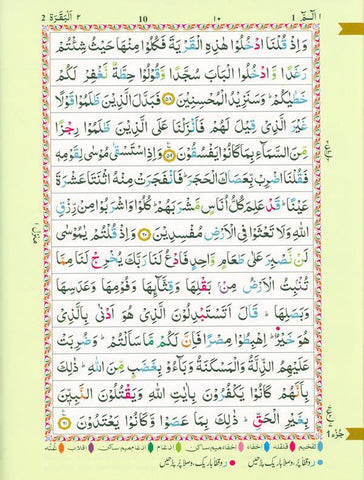 الٓمّٓ ١ 10 ١٠ ٢ اَلْبَقَرَة 2
وَاِذْ قُلْنَا ادْخُلُوْا هٰذِهِ الْقَرْيَةَ فَكُلُوْا مِنْهَا حَيْثُ شِئْتُمْ
رَغَدًا وَّادْخُلُوا الْبَابَ سُجَّدًا وَّقُوْلُوْا حِطَّةٌ نَّغْفِرْ لَكُمْ
خَطٰيٰكُمْ ؕ وَسَنَزِيْدُ الْمُحْسِنِيْنَ ۝٥٨ فَبَدَّلَ الَّذِيْنَ ظَلَمُوْا قَوْلًا
غَيْرَ الَّذِيْ قِيْلَ لَهُمْ فَاَنْزَلْنَا عَلَى الَّذِيْنَ ظَلَمُوْا رِجْزًا
مِّنَ السَّمَآءِ بِمَا كَانُوْا يَفْسُقُوْنَ ۝٥٩ وَاِذِ اسْتَسْقٰى مُوْسٰى لِقَوْمِهٖ
فَقُلْنَا اضْرِبْ بِّعَصَاكَ الْحَجَرَ ؕ فَانْفَجَرَتْ مِنْهُ اثْنَتَا عَشْرَةَ
عَيْنًا ؕ قَدْ عَلِمَ كُلُّ اُنَاسٍ مَّشْرَبَهُمْ ؕ كُلُوْا وَاشْرَبُوْا مِنْ رِّزْقِ
اللّٰهِ وَلَا تَعْثَوْا فِى الْاَرْضِ مُفْسِدِيْنَ ۝٦٠ وَاِذْ قُلْتُمْ يٰمُوْسٰى
لَنْ نَّصْبِرَ عَلٰى طَعَامٍ وَّاحِدٍ فَادْعُ لَنَا رَبَّكَ يُخْرِجْ لَنَا مِمَّا
تُنْۢبِتُ الْاَرْضُ مِنْۢ بَقْلِهَا وَقِثَّآئِهَا وَفُوْمِهَا وَعَدَسِهَا
وَبَصَلِهَا ؕ قَالَ اَتَسْتَبْدِلُوْنَ الَّذِيْ هُوَ اَدْنٰى بِالَّذِيْ
هُوَ خَيْرٌ ؕ اِهْبِطُوْا مِصْرًا فَاِنَّ لَكُمْ مَّا سَاَلْتُمْ ؕ وَضُرِبَتْ
عَلَيْهِمُ الذِّلَّةُ وَالْمَسْكَنَةُ وَبَآءُوْ بِغَضَبٍ مِّنَ اللّٰهِ ؕ ذٰلِكَ
بِاَنَّهُمْ كَانُوْا يَكْفُرُوْنَ بِاٰيٰتِ اللّٰهِ وَيَقْتُلُوْنَ النَّبِيّٖنَ
بِغَيْرِ الْحَقِّ ؕ ذٰلِكَ بِمَا عَصَوْا وَّكَانُوْا يَعْتَدُوْنَ ۝٦١
تفخیم قلقلہ اخفاء اخفاء میم ساکن ادغام ادغام میم ساکن اقلاب غنّہ
منزل ١
جُزْء 1